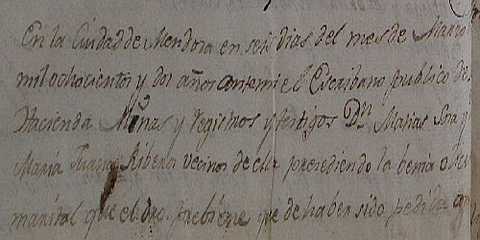 En la Ciudad de Mendoza en seis dias del mes de Marzo
mil ochocientos y dos años ante mi el Escribano publico de
Hacienda Minas y registros y testigos Dn Matias Sosa y
Maria Juana Ribero vecinos de ella precediendo la benia
marital que el dro previene que de haber sido pedida